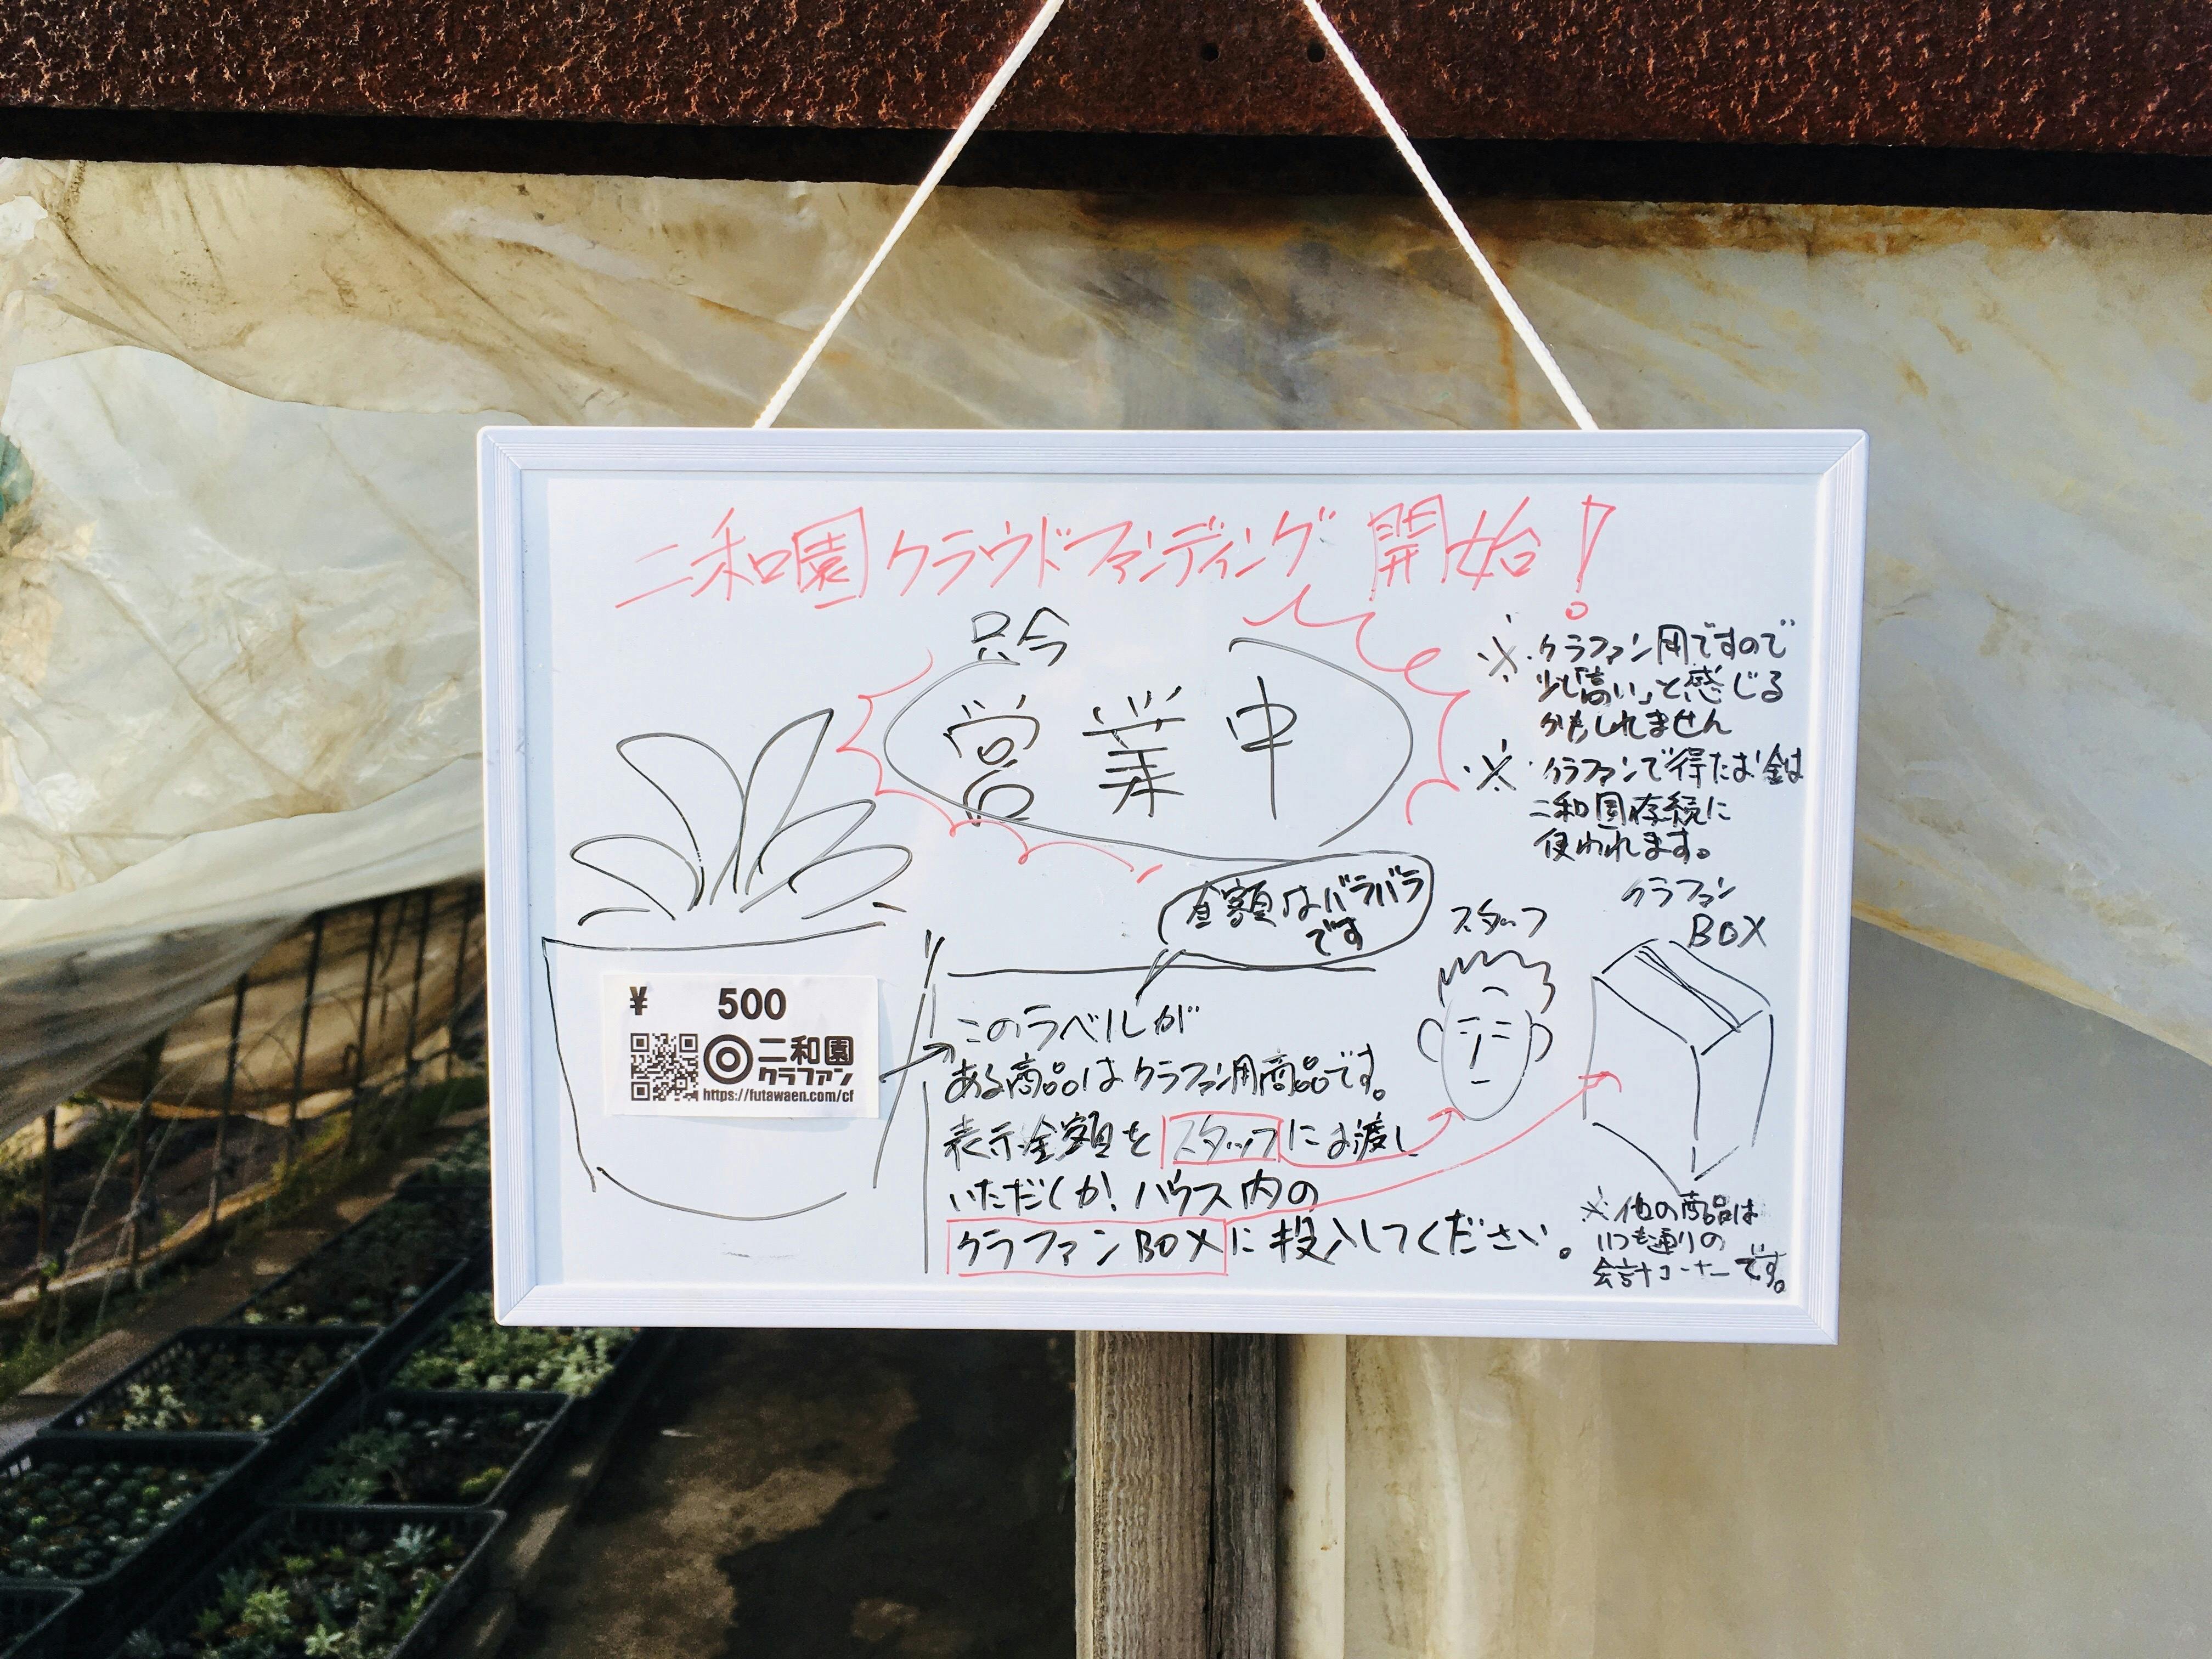 二和園クラウドファンディング 開始!
只今
営業中
※ クラファン用ですので
少し「高い」と感じる
かもしれません
※ クラファンで得たお金は
二和園存続に
使われます。
金額はバラバラ
です
スタッフ
クラファン
BOX
¥ 500
二和園
クラファン
https://futawaen.com/cf
このラベルが
ある商品はクラファン用商品です。
表示金額をスタッフにお渡し
いただくか!ハウス内の
クラファンBOXに投入してください。
※他の商品は
いつも通りの
会計コーナーです。